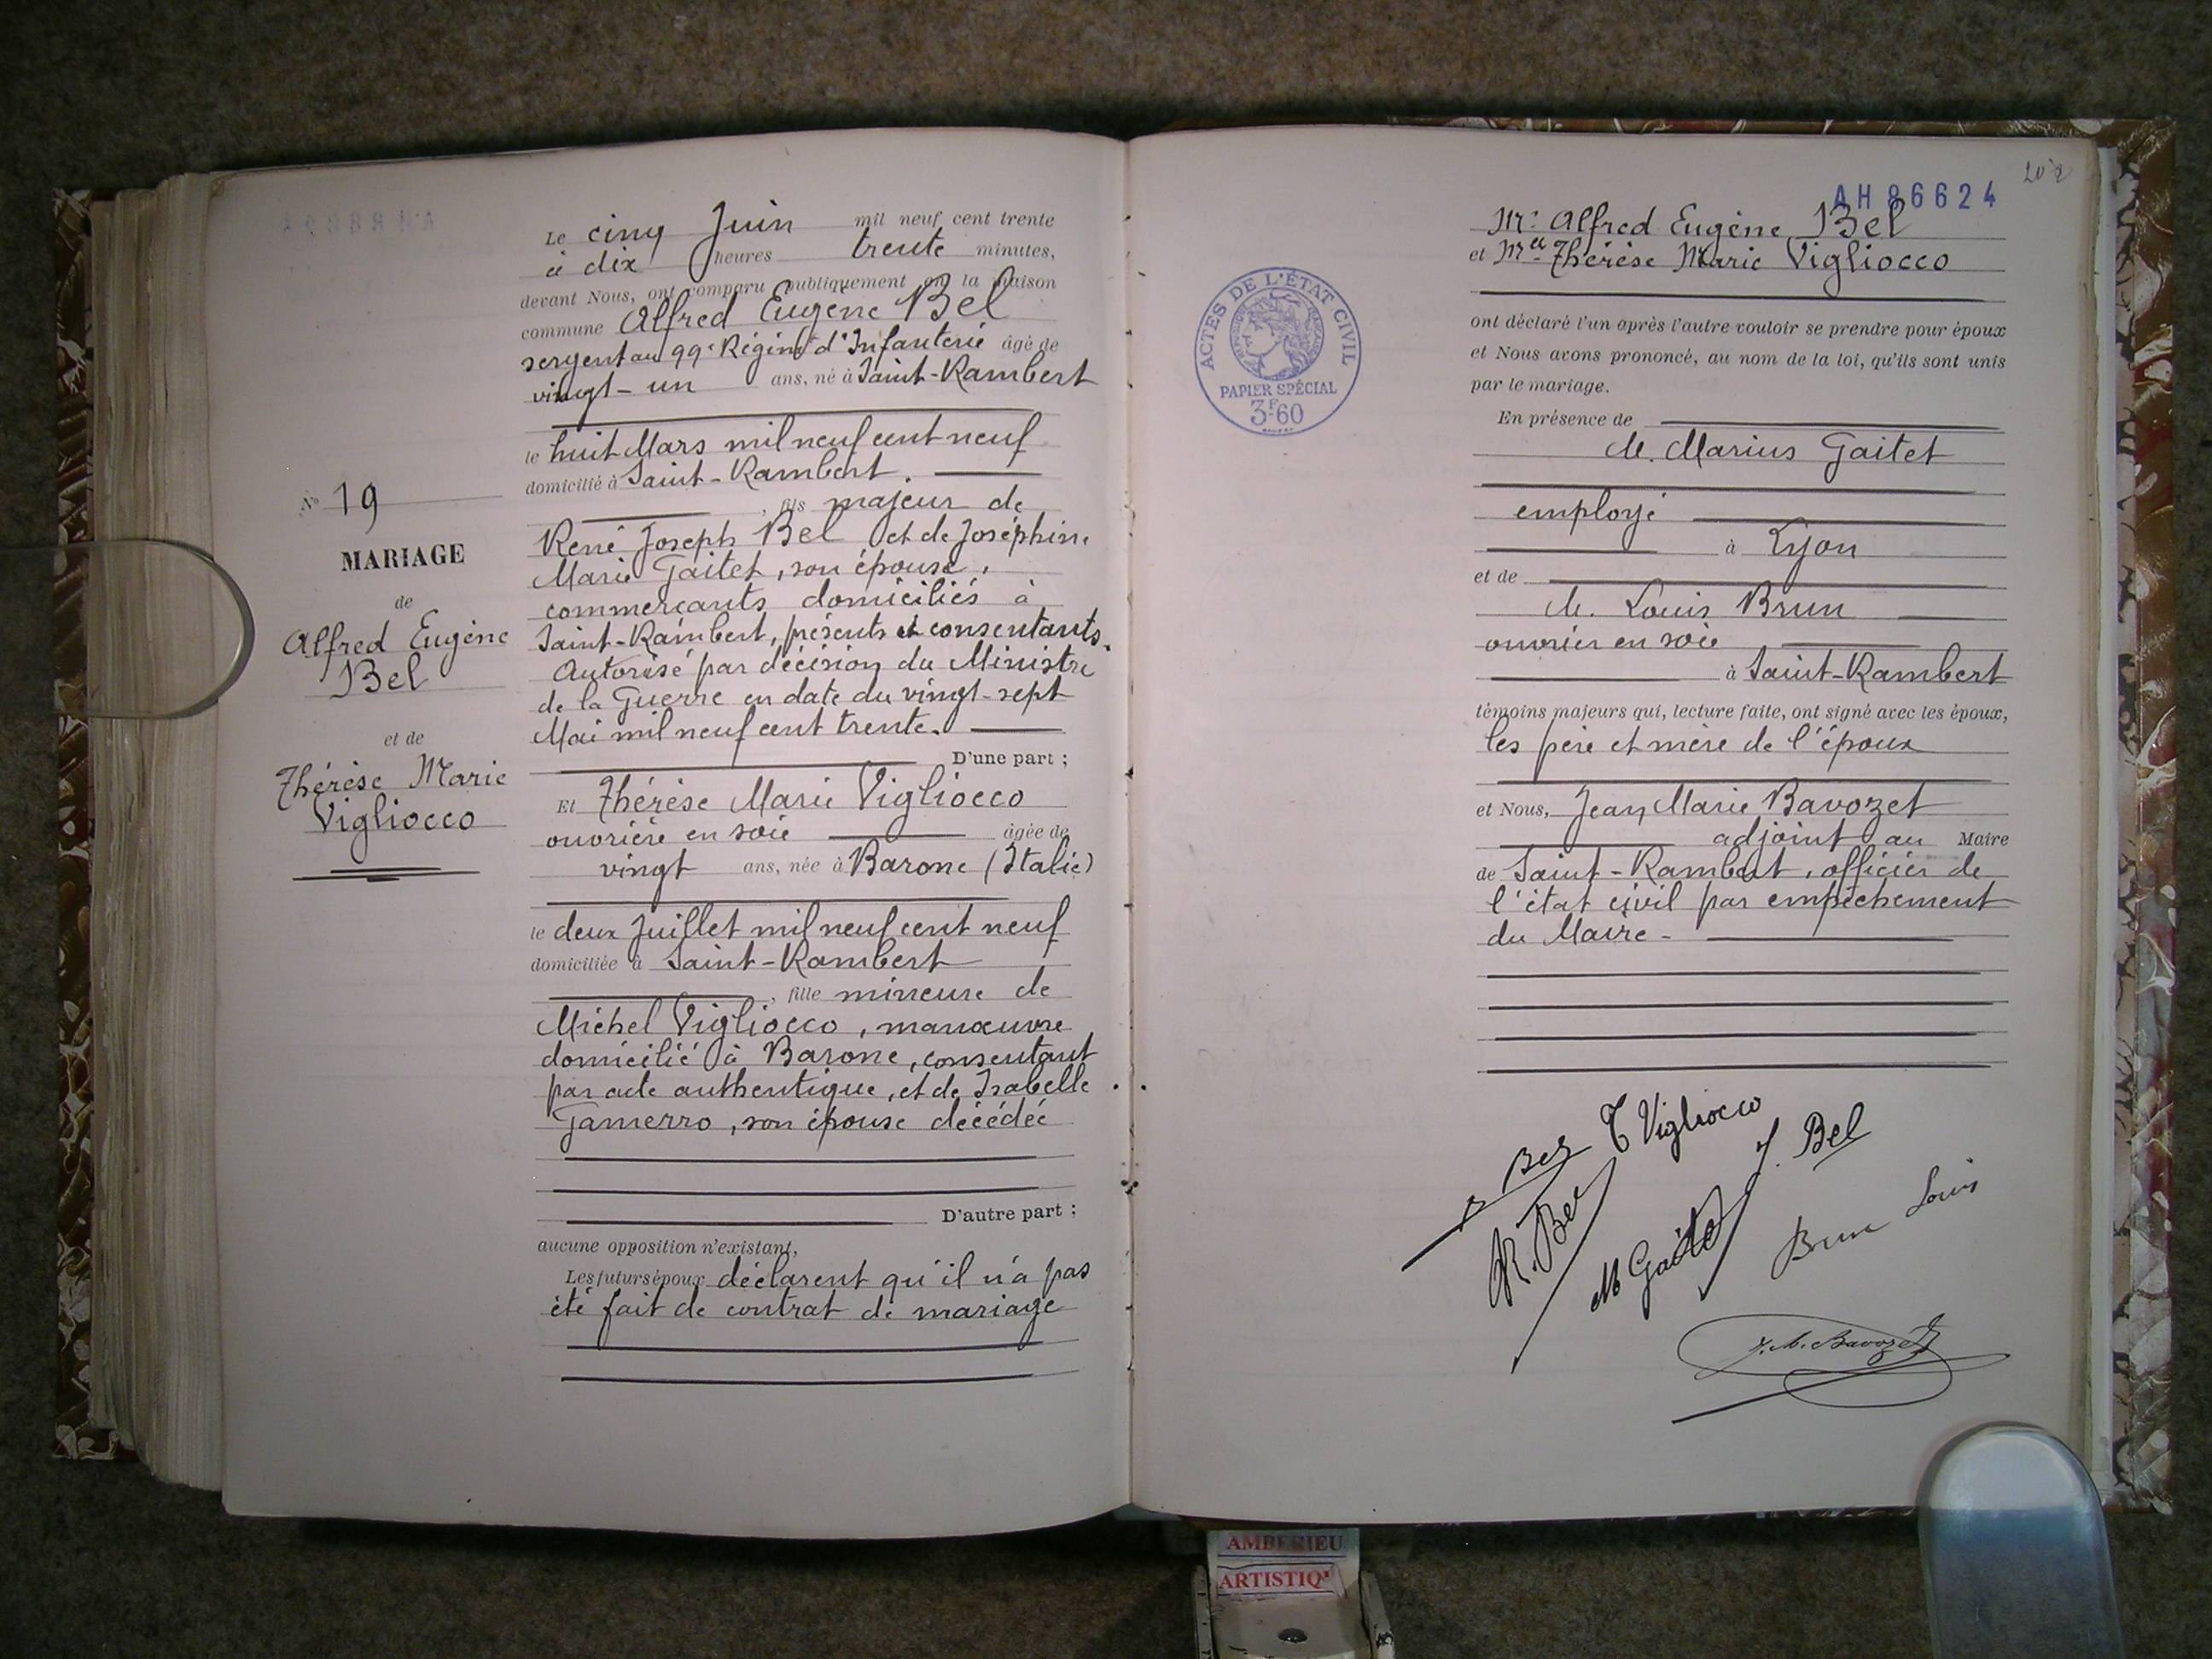 Le cinq Juin mil neuf cent trente
à dix heures trente minutes,
devant Nous, ont comparu publiquement en la maison
commune Alfred Eugène Bel
sergent au 99e Régimt d'Infanterie âgé de
vingt-un ans, né à Saint-Rambert
le huit Mars mil neuf cent neuf
domicilié à Saint-Rambert.
, fils majeur de
René Joseph Bel et de Joséphine
Marie Gaitet, son épouse,
commerçants domiciliés à
Saint-Rambert, présents et consentants.
Autorisé par décision du Ministre
de la Guerre en date du vingt-sept
Mai mil neuf cent trente.
D'une part ;
Et Thérèse Marie Vigliocco
ouvrière en soie âgée de
vingt ans, née à Barone (Italie)
le deux Juillet mil neuf cent neuf
domiciliée à Saint-Rambert
, fille mineure de
Michel Vigliocco, manœuvre
domicilié à Barone, consentant
par acte authentique, et de Isabelle
Gamerro, son épouse décédée
D'autre part ;
aucune opposition n'existant,
Les futurs époux déclarent qu'il n'a pas
été fait de contrat de mariage
No 19
MARIAGE
de
Alfred Eugène
Bel
et de
Thérèse Marie
Vigliocco
AH 86624
ACTES DE L'ÉTAT CIVIL
PAPIER SPÉCIAL
3F60
Mr. Alfred Eugène Bel
et Melle Thérèse Marie Vigliocco
ont déclaré l'un après l'autre vouloir se prendre pour époux
et Nous avons prononcé, au nom de la loi, qu'ils sont unis
par le mariage.
En présence de
M. Marius Gaitet
employé
à Lyon
et de
M. Louis Brun
ouvrier en soie
à Saint-Rambert
témoins majeurs qui, lecture faite, ont signé avec les époux,
les père et mère de l'époux
et Nous, Jean Marie Bavozet
adjoint au Maire
de Saint-Rambert, officier de
l'état civil par empêchement
du Maire -
Bel T Vigliocco
J. Bel
R. Bel
M Gaitet
Brun Louis
J. M. Bavozet
AMBERIEU
ARTISTIQ